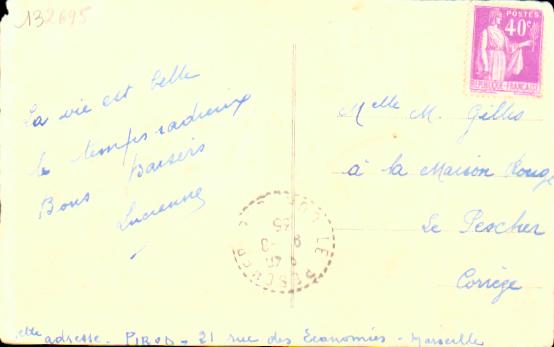 132695
La vie est belle
le temps radieux
Bons baisers
Lucienne
POSTES
40c
REPUBLIQUE FRANÇAISE
Melle M. Gillis
à la Maison Rouge
Le Pescher
Corrèze
LE PESCHER
adresse - PIROD - 21 rue des Economies - Marseille